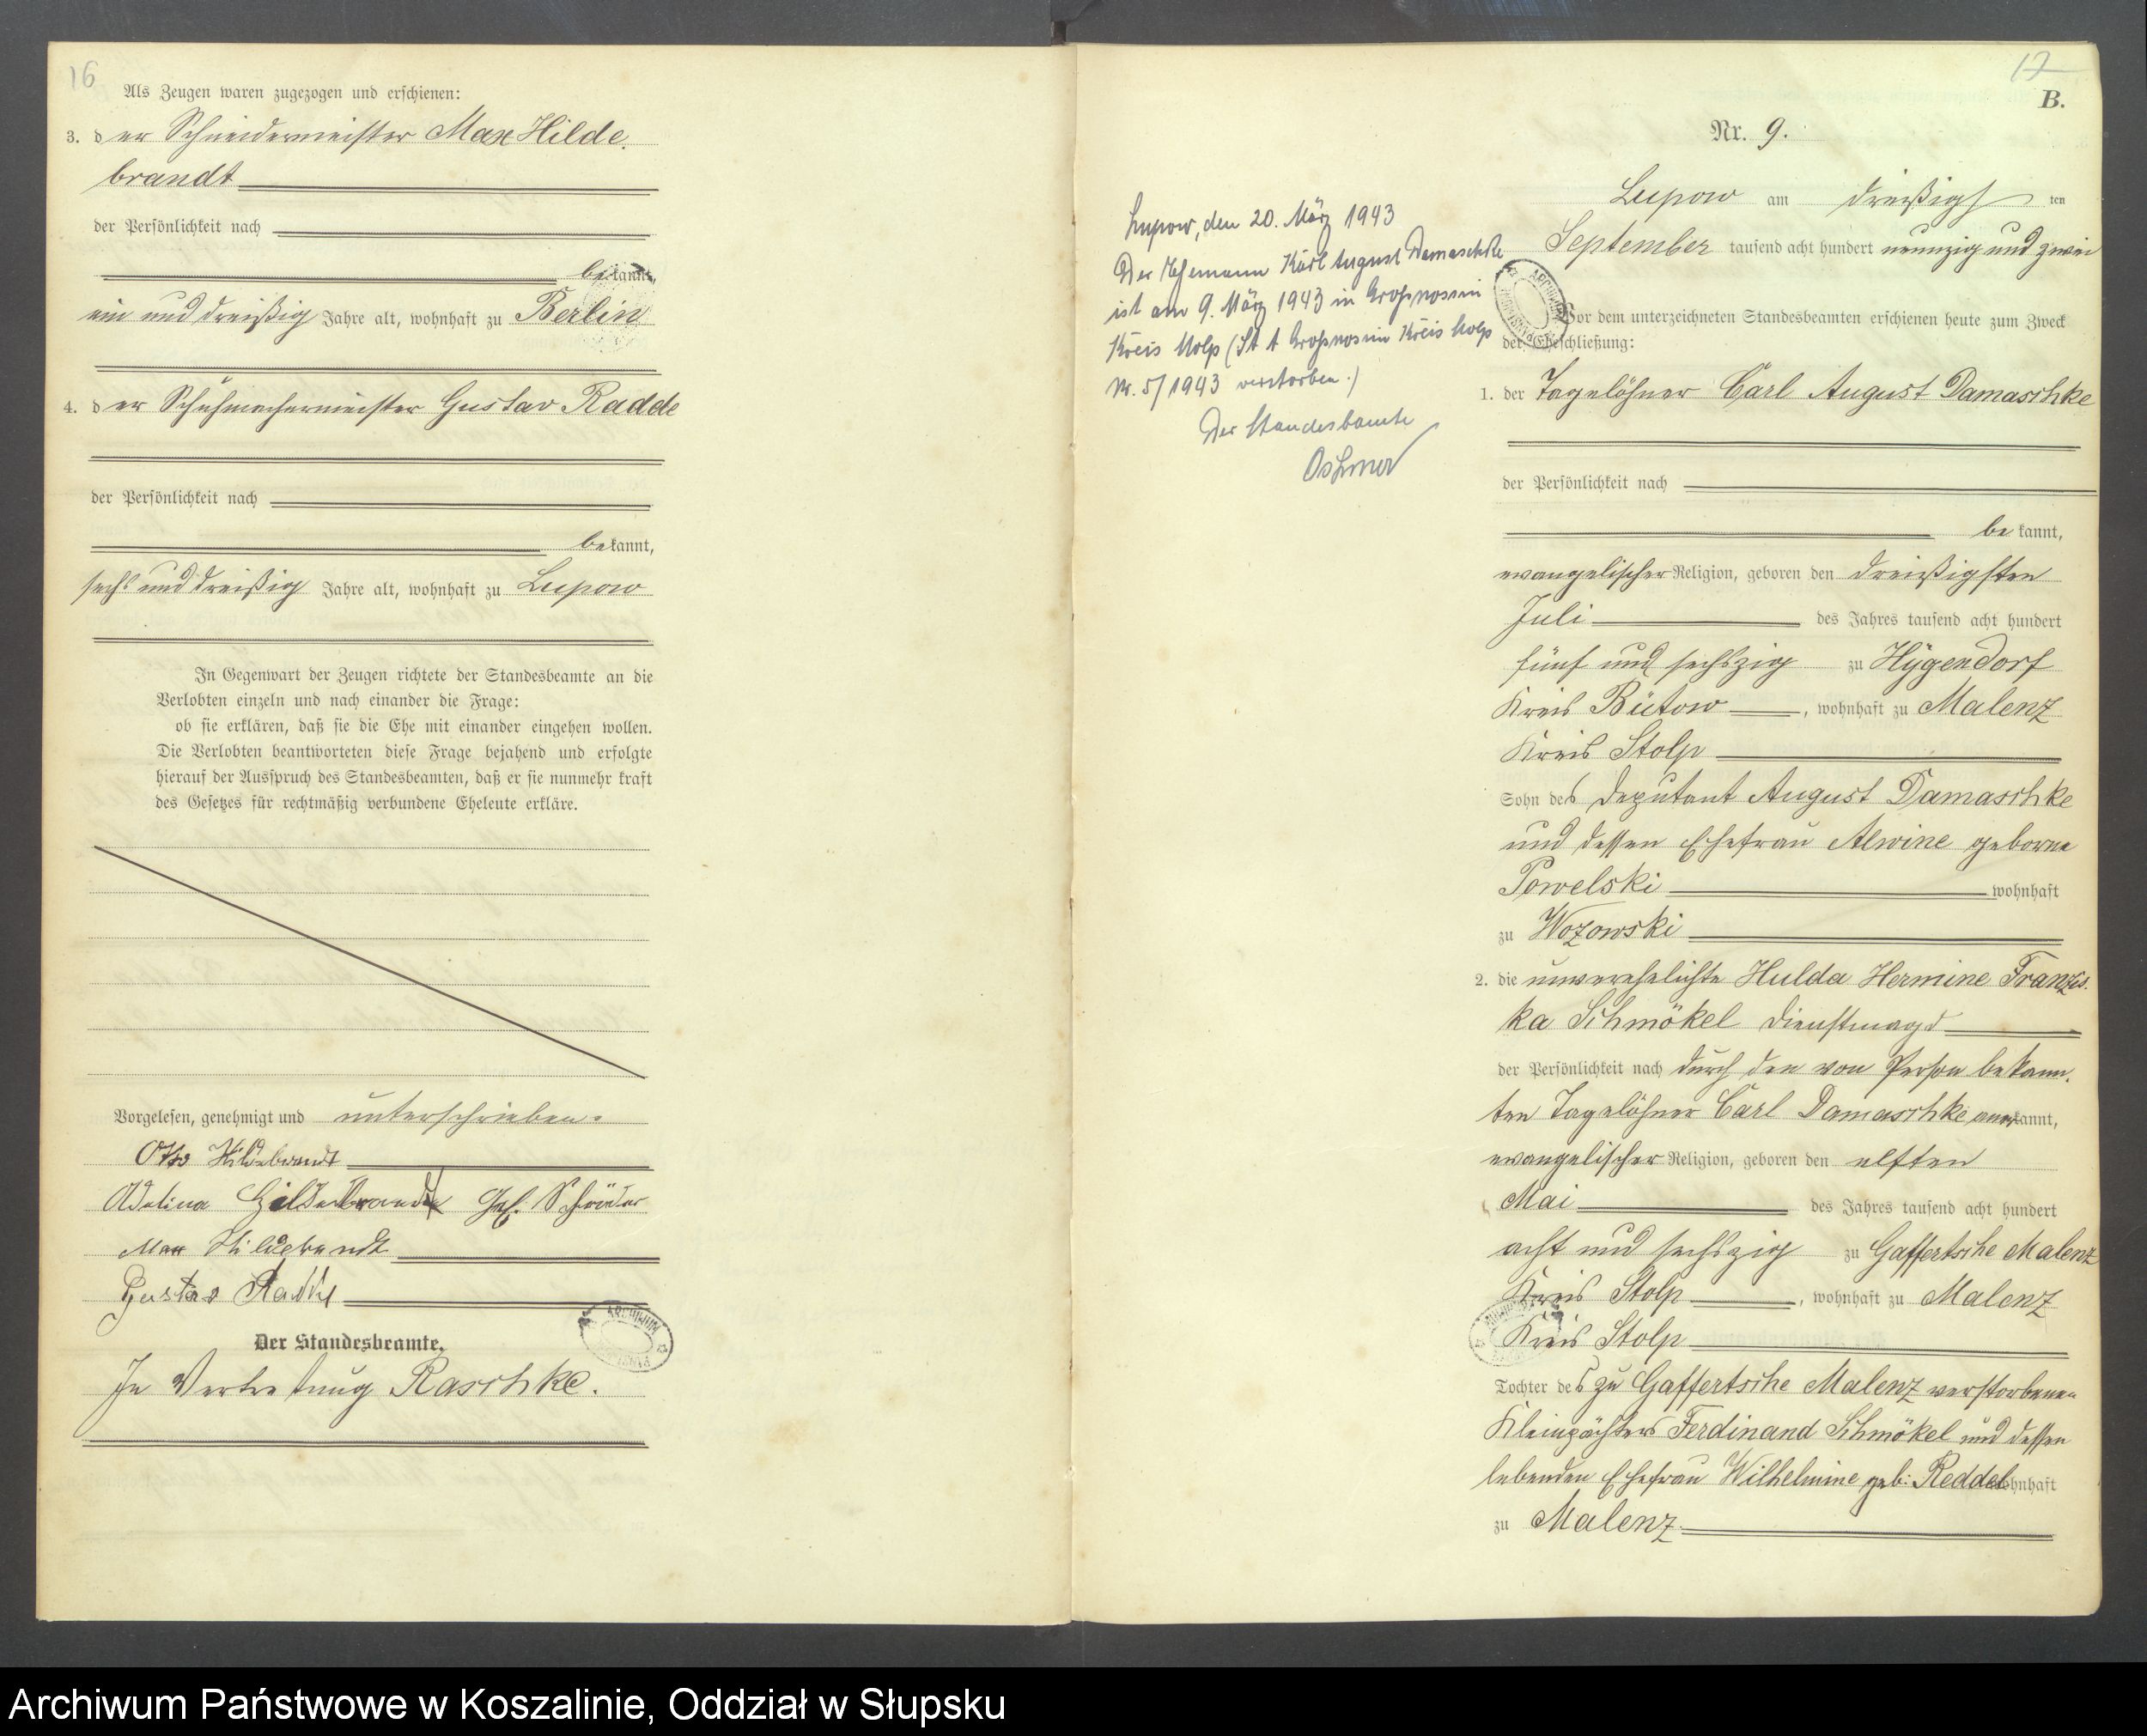 16
Als Zeugen waren zugezogen und erschienen:
3. der Schneidermeister Max Hilde-
brandt
der Persönlichkeit nach
bekannt,
ein und dreißig Jahre alt, wohnhaft zu Berlin
4. der Schuhmachermeister Gustav Radde
der Persönlichkeit nach
bekannt,
sechs und dreißig Jahre alt, wohnhaft zu Lupow
In Gegenwart der Zeugen richtete der Standesbeamte an die
Verlobten einzeln und nach einander die Frage:
ob sie erklären, daß sie die Ehe mit einander eingehen wollen.
Die Verlobten beantworteten diese Frage bejahend und erfolgte
hierauf der Ausspruch des Standesbeamten, daß er sie nunmehr kraft
des Gesetzes für rechtmäßig verbundene Eheleute erkläre.
Vorgelesen, genehmigt und unterschrieben.
Otto Hildebrandt
Adeline Hildebrandt geb. Schröder
Max Hildebrandt
Gustav Radde
Der Standesbeamte.
In Vertretung Raschke.
17
B.
Nr. 9.
Lupow am dreißigsten
September tausend acht hundert neunzig und zwei
Vor dem unterzeichneten Standesbeamten erschienen heute zum Zweck
der Eheschließung:
1. der Tagelöhner Carl August Damaschke
der Persönlichkeit nach
bekannt,
evangelischer Religion, geboren den dreißigsten
Juli des Jahres tausend acht hundert
fünf und sechszig zu Hygendorf
Kreis Bütow, wohnhaft zu Malenz
Kreis Stolp
Sohn des Deputant August Damaschke
und dessen Ehefrau Alwine geborne
Powelski wohnhaft
zu Wozowski
2. die unverehelichte Hulda Hermine Franzis-
ka Schmökel Dienstmagd
der Persönlichkeit nach durch den von Person bekann-
ten Tagelöhner Carl Damaschke anerkannt,
evangelischer Religion, geboren den elften
Mai des Jahres tausend acht hundert
acht und sechszig zu Gaffertsche Malenz
Kreis Stolp, wohnhaft zu Malenz
Kreis Stolp
Tochter des zu Gaffertsche Malenz verstorbenen
Kleinpächters Ferdinand Schmökel und dessen
lebenden Ehefrau Wilhelmine geb: Reddel wohnhaft
zu Malenz.
Lupow, den 20. März 1943
Der Ehemann Karl August Damaschke
ist am 9. März 1943 in Großnossin
Kreis Stolp (St A Großnossin Kreis Stolp
Nr. 5/1943 verstorben.)
Der Standesbeamte
Archiwum Państwowe w Koszalinie, Oddział w Słupsku